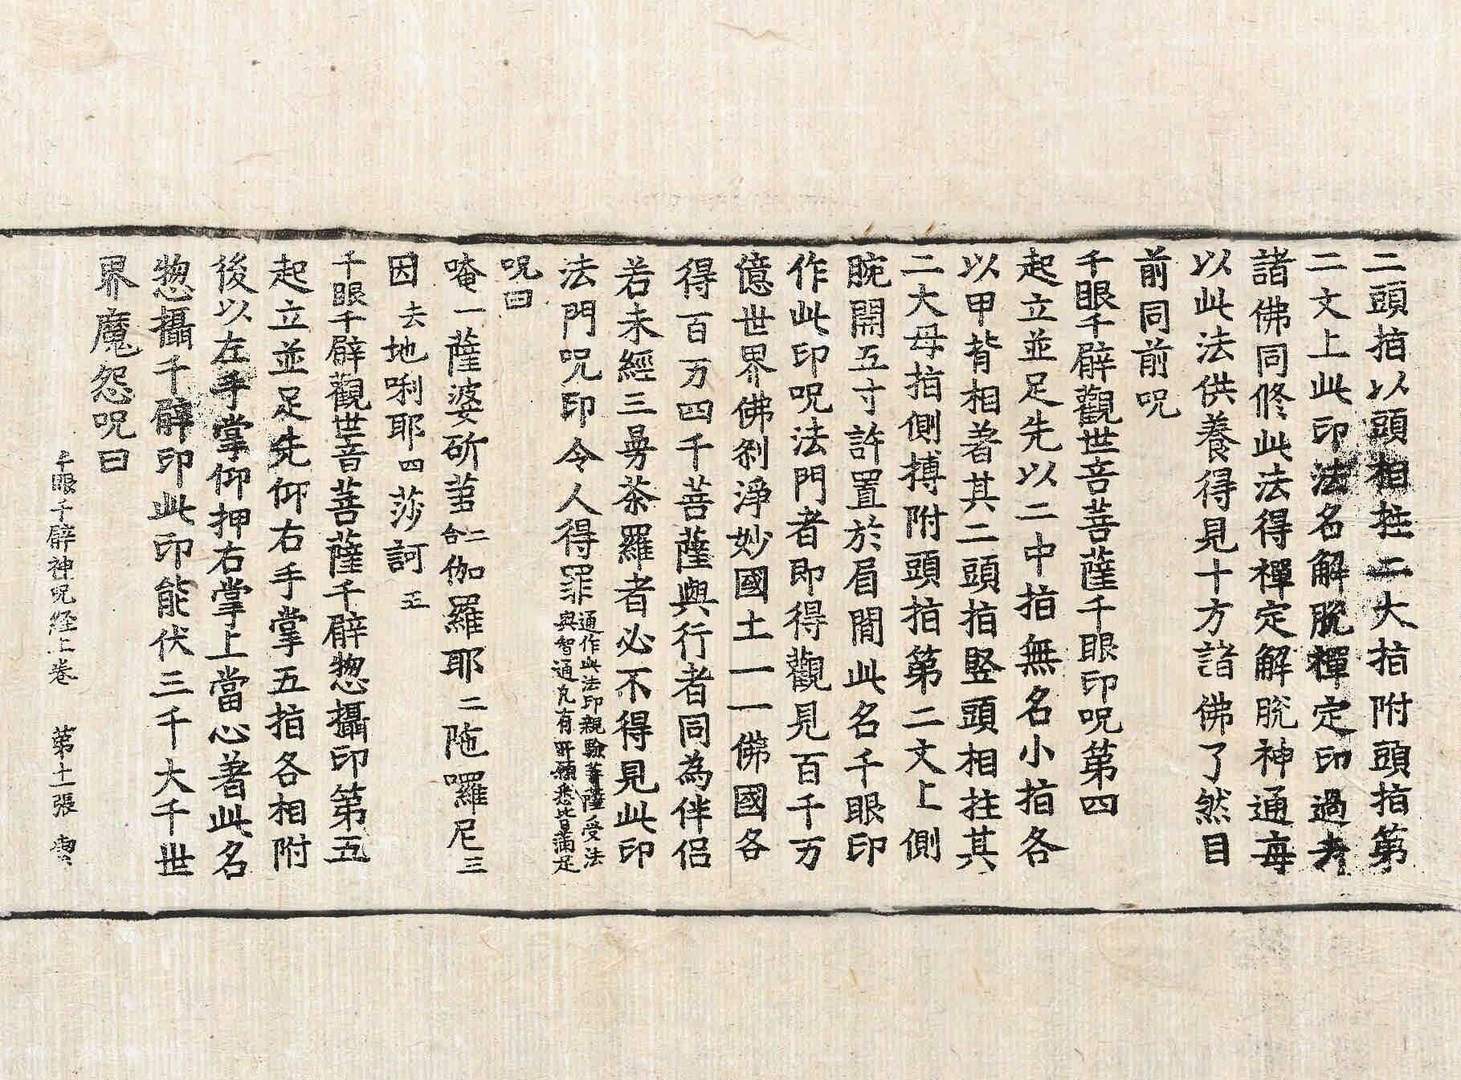 二頭指以頭相拄二大指附頭指第
二文上此印法名解脫禪定印過去
諸佛同修此法得禪定解脫神通每
以此法供養得見十方諸佛了然目
前同前呪
千眼千臂觀世音菩薩千眼印呪第四
起立並足先以二中指無名小指各
以甲背相著其二頭指豎頭相拄其
二大母指側搏附頭指第二文上側
腕開五寸許置於眉間此名千眼印
作此印呪法門者即得觀見百千万
億世界佛剎淨妙國土一一佛國各
得百万四千菩薩與行者同為伴侶
若未經三曼荼羅者必不得見此印
法門呪印令人得罪通作此法印親驗菩薩受法
與智通凡有所願悉皆滿足
呪曰
唵一薩婆斫芻二合伽羅耶二陁囉尼三
因去地唎耶四莎訶五
千眼千臂觀世音菩薩千臂惣攝印第五
起立並足先仰右手掌五指各相附
後以左手掌仰押右掌上當心著此名
惣攝千臂印此印能伏三千大千世
界魔怨呪曰
千眼千臂神呪経上卷 第十一張